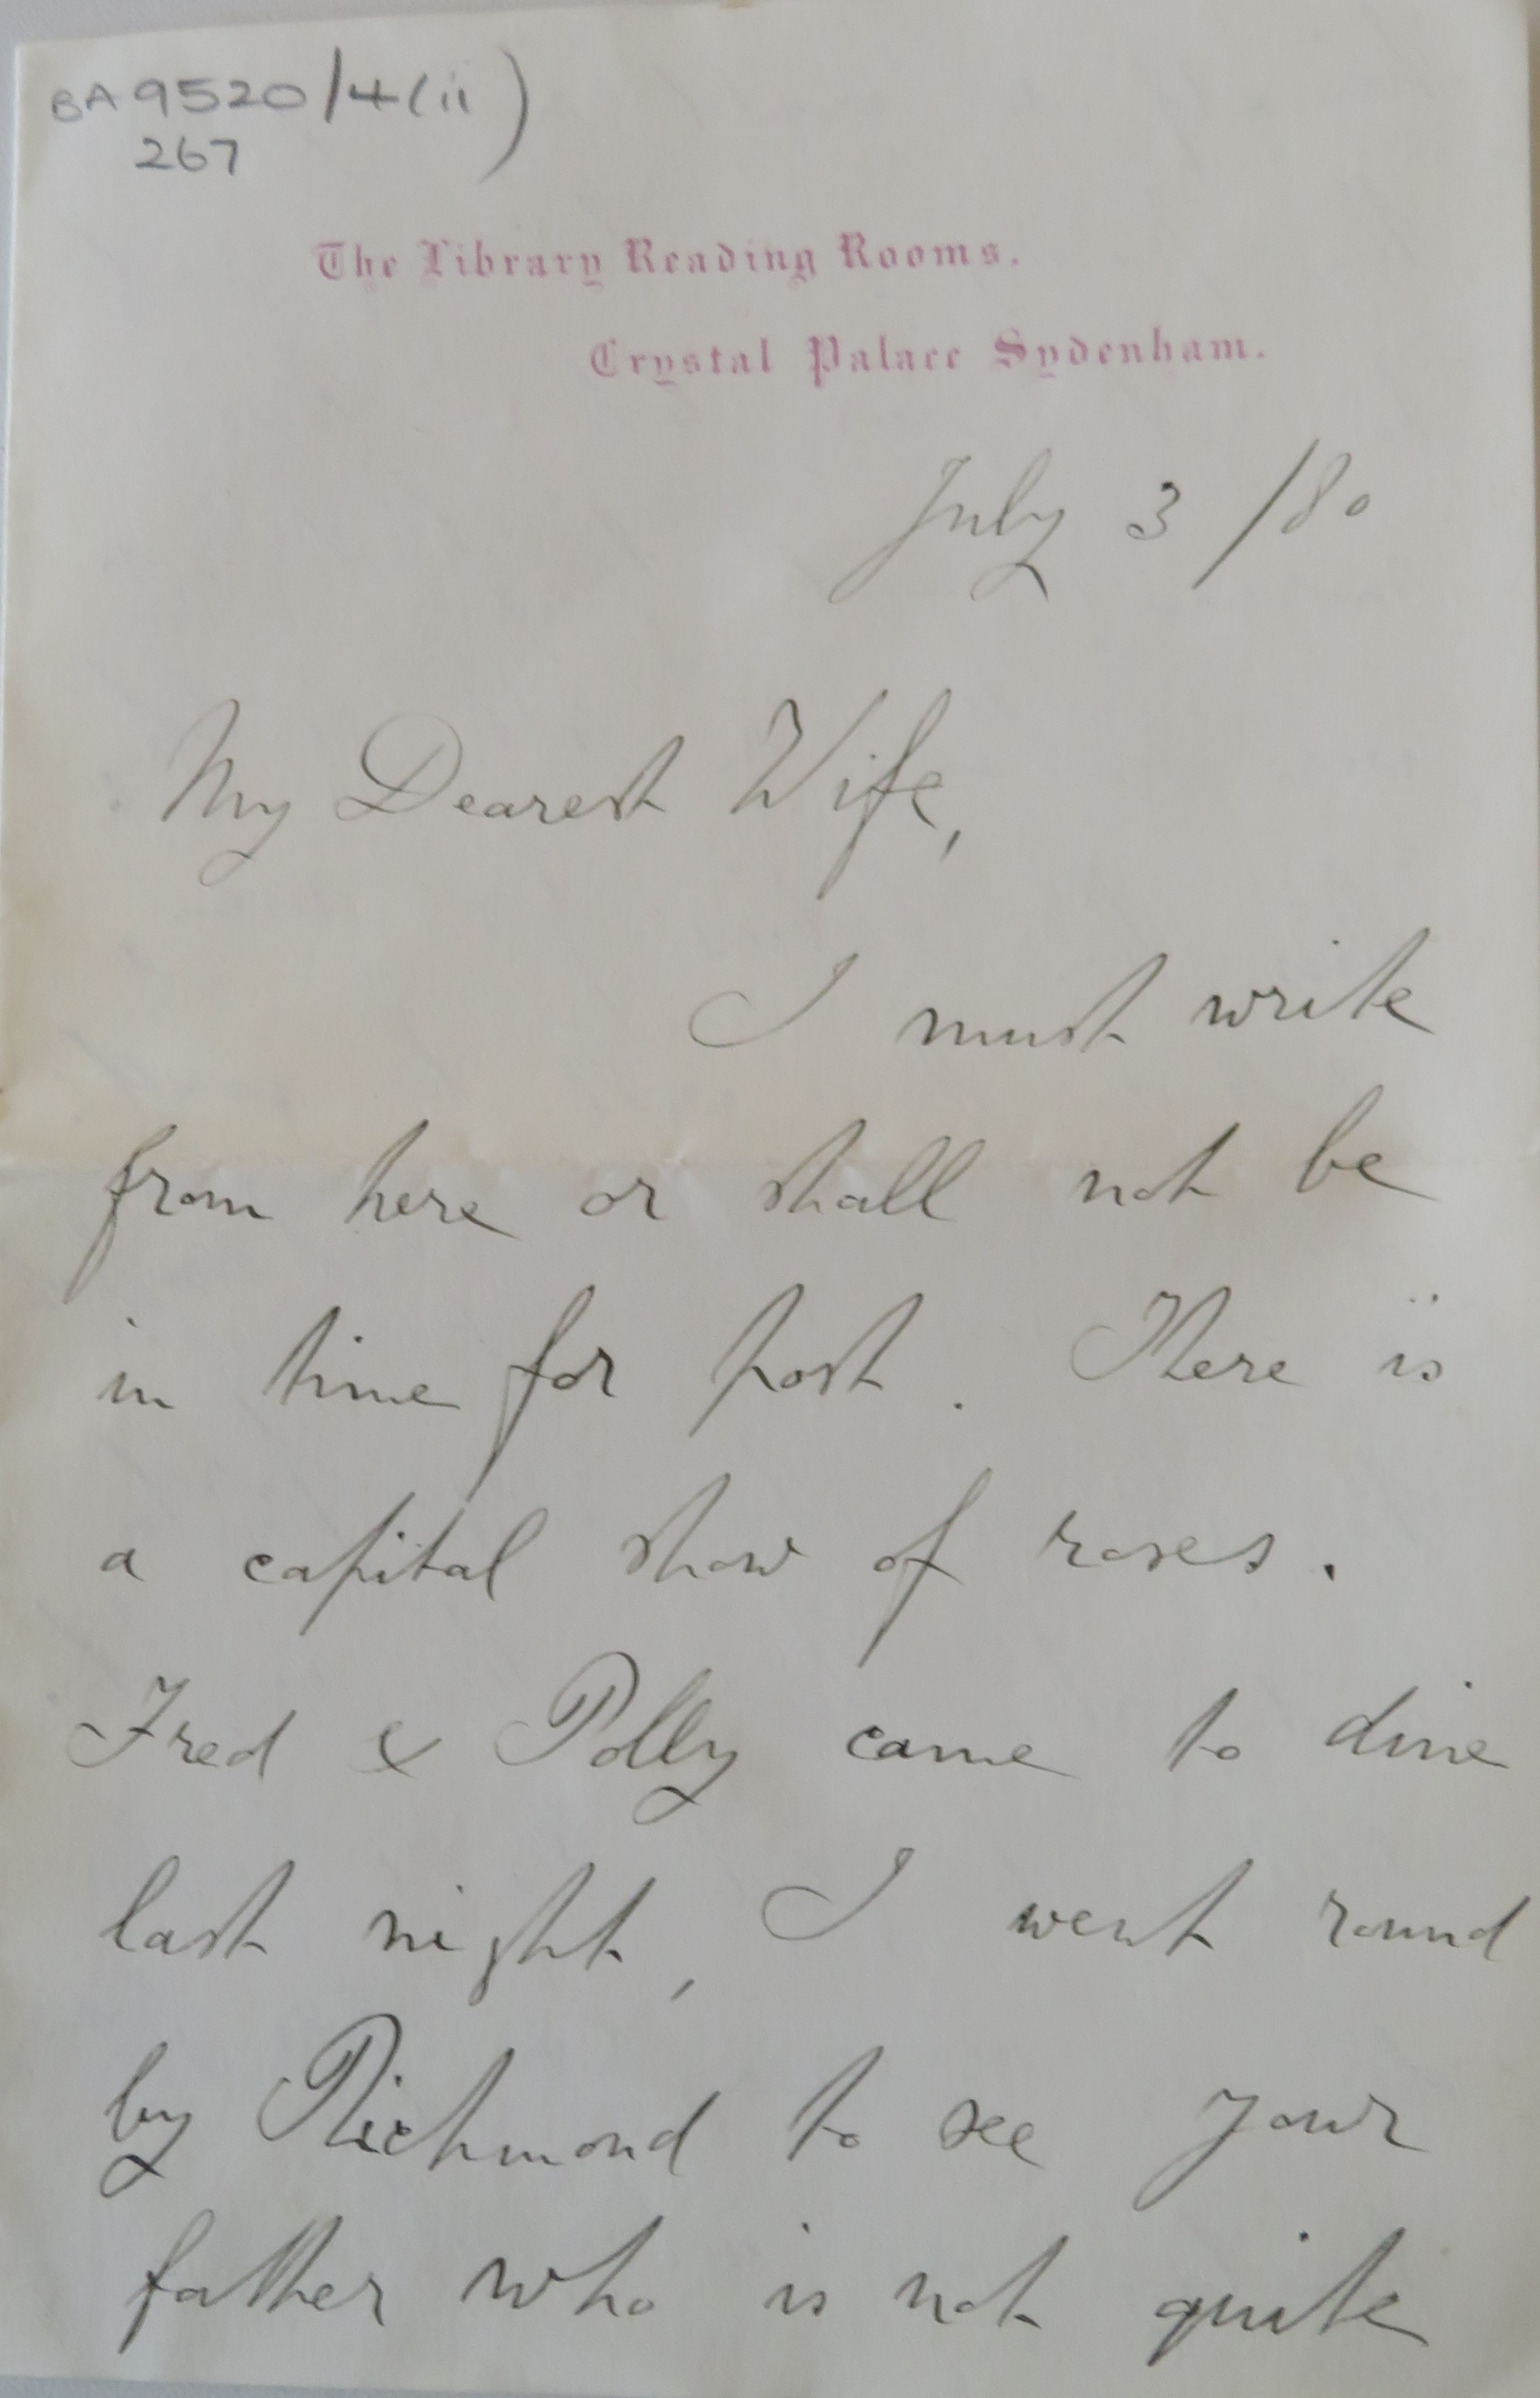 BA 9520/4(ii)
267
The Library Reading Rooms.
Crystal Palace Sydenham.
July 3 /80
My Dearest Wife,
I must write
from here or shall not be
in time for post. There is
a capital show of roses.
Fred & Polly came to dine
last night, I went round
by Richmond to see your
father who is not quite